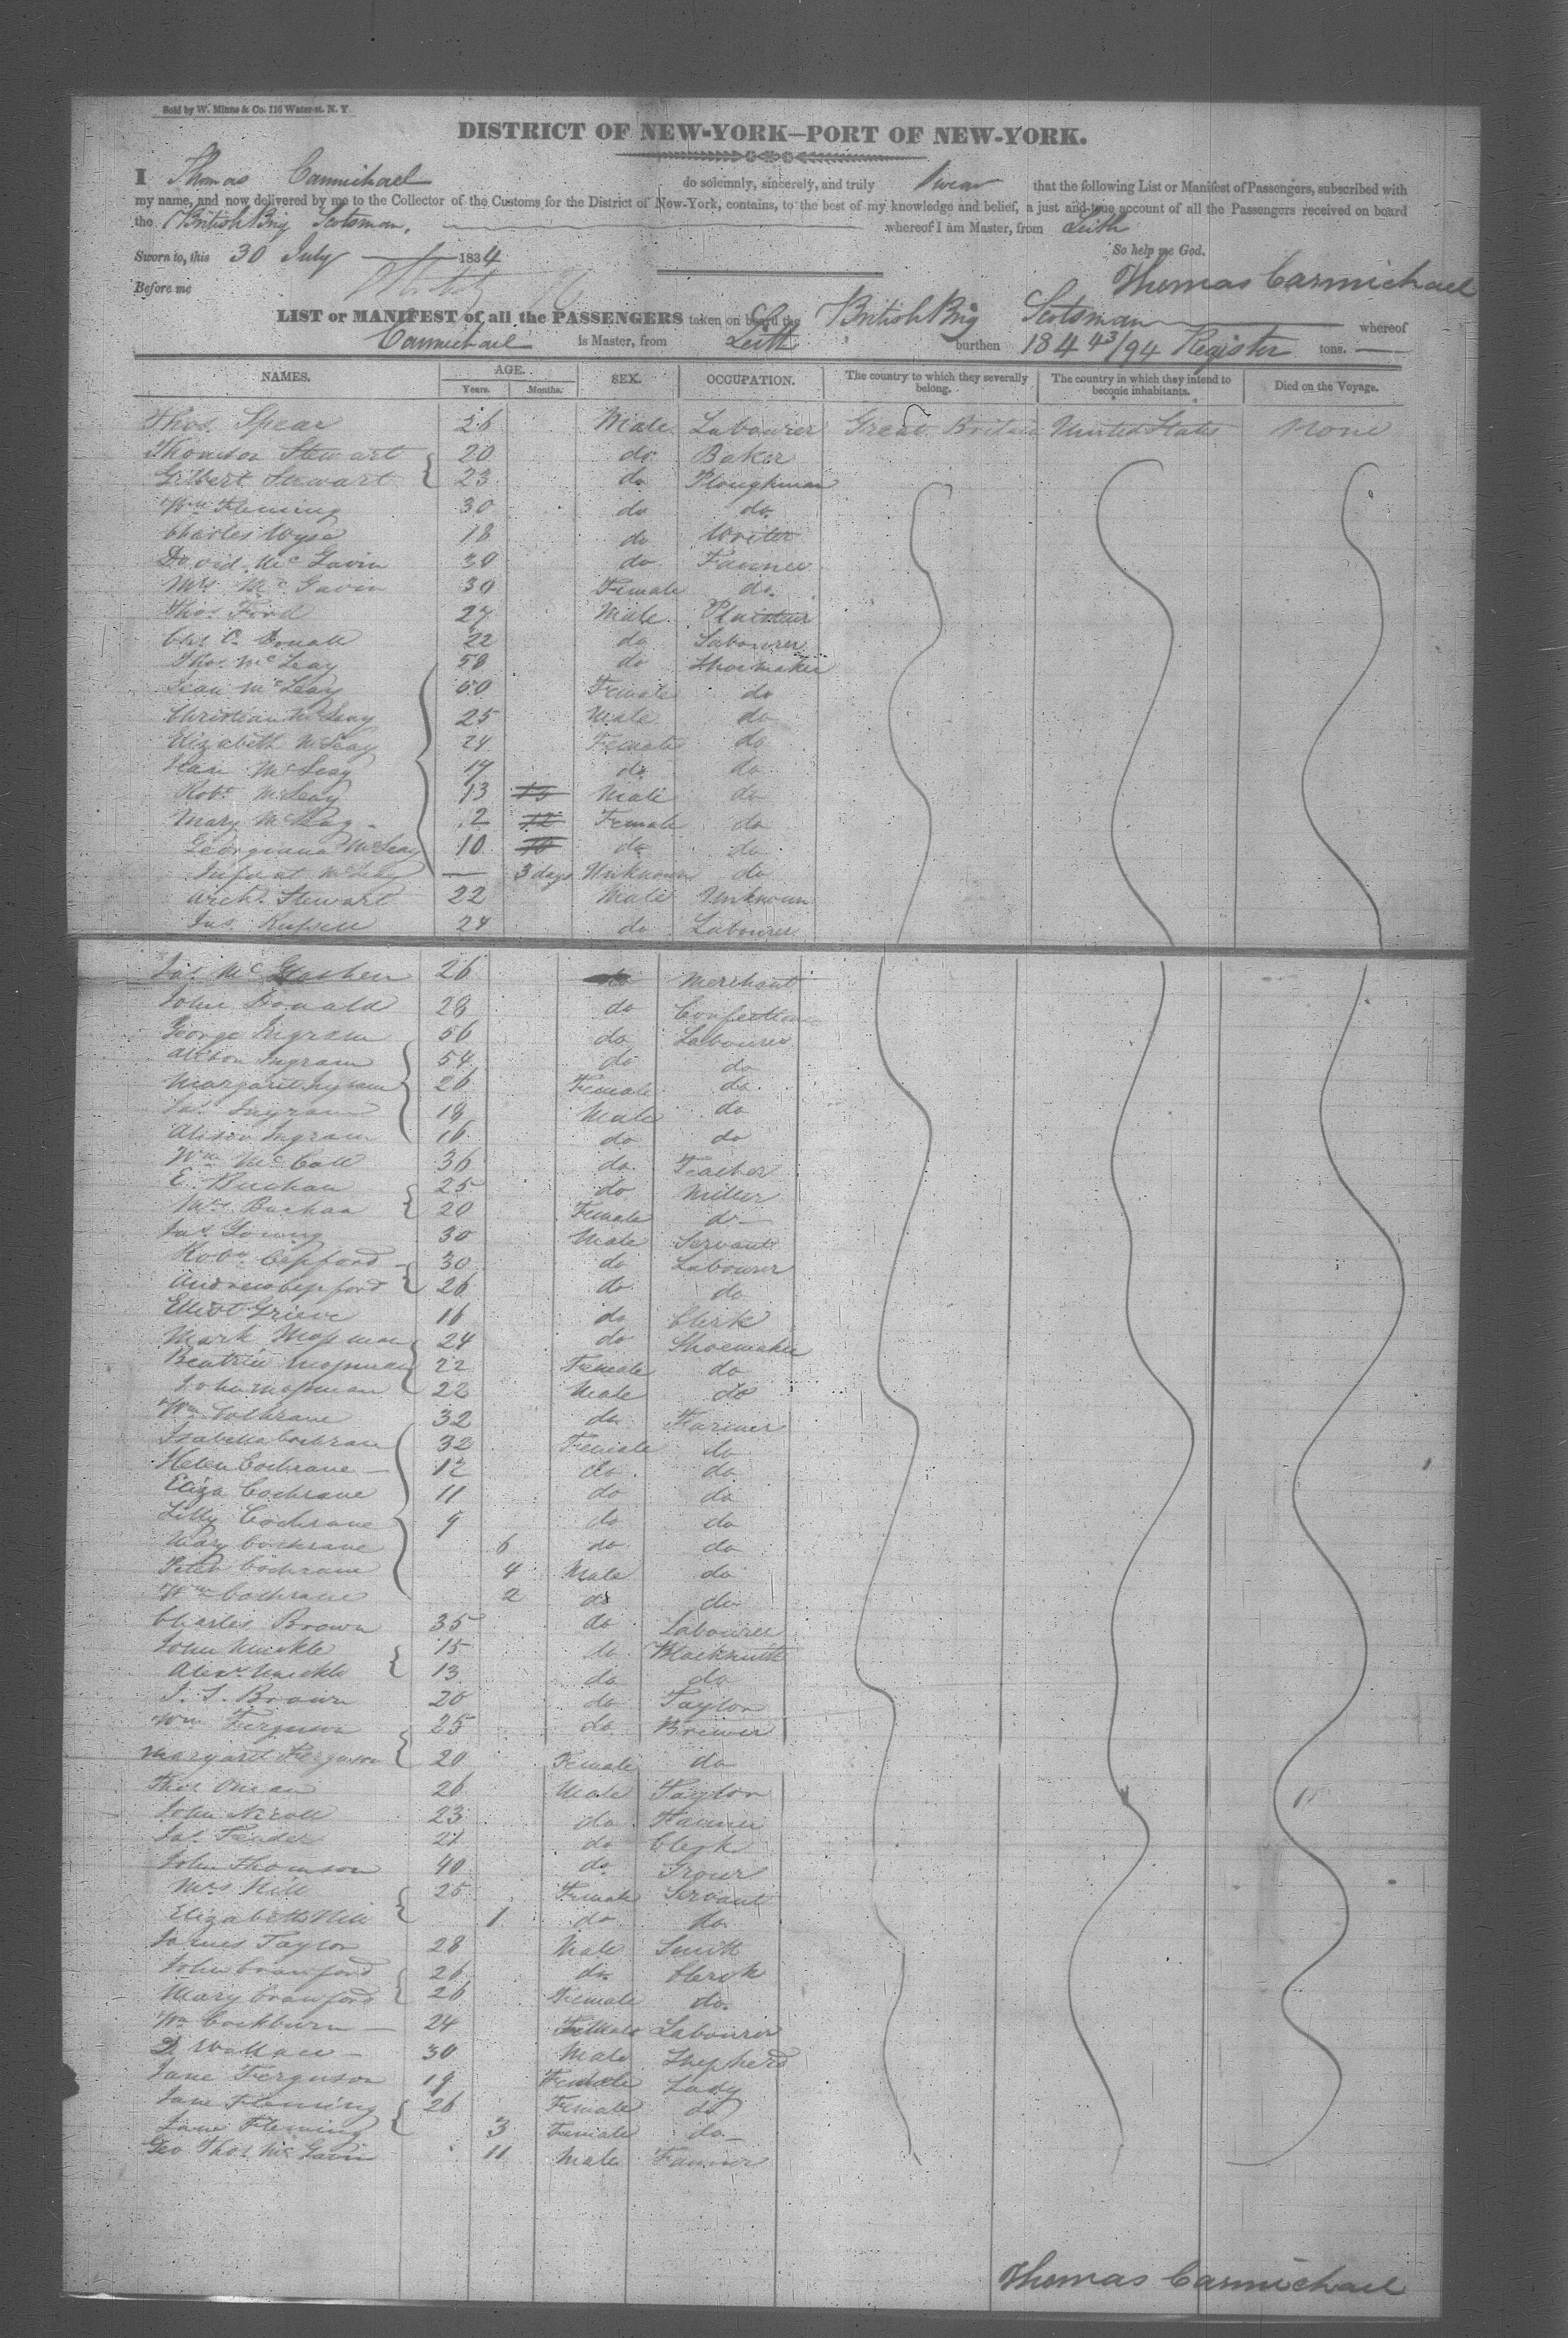 Sold by W. Minns & Co. 116 Water-st. N. Y.
DISTRICT OF NEW-YORK—PORT OF NEW-YORK.
I Thomas Carmichael do solemnly, sincerely, and truly swear that the following List or Manifest of Passengers, subscribed with
my name, and now delivered by me to the Collector of the Customs for the District of New-York, contains, to the best of my knowledge and belief, a just and true account of all the Passengers received on board
the British Brig Scotsman, whereof I am Master, from Leith
Sworn to, this 30 July 1834 So help me God.
Before me Thomas Carmichael
LIST or MANIFEST of all the PASSENGERS taken on board the British Brig Scotsman whereof
Carmichael is Master, from Leith burthen 184 43/94 Register tons.
NAMES. AGE. SEX. OCCUPATION. The country to which they severally belong. The country in which they intend to become inhabitants. Died on the Voyage.
Years. Months.
Thos. Spear 26 Male Labourer Great Britain United States None
Thomson Stewart 20 do Baker
Gilbert Stewart 23 do Ploughman
Wm Fleming 30 do do
Charles Wyse 18 do Writer
David McGavin 30 do Farmer
Mrs McGavin 30 Female do
Thos. Ford 27 Male
22 do Labourer
Thos. McLeay 58 do Shoemaker
Jean McLeay 50 Female do
Christian McLeay 25 Male do
Elizabeth McLeay 24 Female do
McLeay 17 do do
Robt McLeay 13 Male do
Mary McLeay 2 Female do
Georgiana McLeay 10 do do
Infant McLeay — 3 days Unknown do
Archd. Stewart 22 Male Unknown
Jas. Russell 24 do Labourer
Jas. McGlashen 26 do Merchant
John Donald 28 do Confection
George Ingram 56 do Labourer
Ingram 54 do do
Margaret Ingram 26 Female do
Jas. Ingram 18 Male do
Alison Ingram 16 do do
Wm McCall 36 do Teacher
E. Buchan 25 do Miller
Mrs. Buchan 20 Female do
Jas. Young 30 Male Servant
Robt. Cessford 30 do Labourer
Andrew Cessford 26 do do
Elliot Grieve 16 do Clerk
Mark Mossman 24 do Shoemaker
Beatrice Mossman 22 Female do
John Mossman 22 Male do
Wm Cochrane 32 do Farmer
Isabella Cochrane 32 Female do
Helen Cochrane 12 do do
Eliza Cochrane 11 do do
Lilly Cochrane 9 do do
Mary Cochrane 6 do do
Peter Cochrane 4 Male do
Wm Cochrane 2 do do
Charles Brown 35 do Labourer
John Meikle 15 do Blacksmith
Alexr Meikle 13 do do
J. S. Brown 20 do Taylor
Wm Ferguson 25 do Brewer
Margaret Ferguson 20 Female do
Thos. 26 Male Taylor
John Nicoll 23 do Farmer
Jas. 21 do Clerk
John Thomson 40 do Grocer
Mrs Hill 25 Female Servant
Elizabeth Hill 1 do do
James Taylor 28 Male Smith
John Crawford 26 do Clerk
Mary Crawford 26 Female do
Wm Cockburn 24 Labourer
D. Wallace 30 Male Shepherd
Jane Ferguson 19 Female Lady
Jane Fleming 26 Female do
Jane Fleming 3 Female do
Geo Thos McGavin 11 Male Farmer
Thomas Carmichael